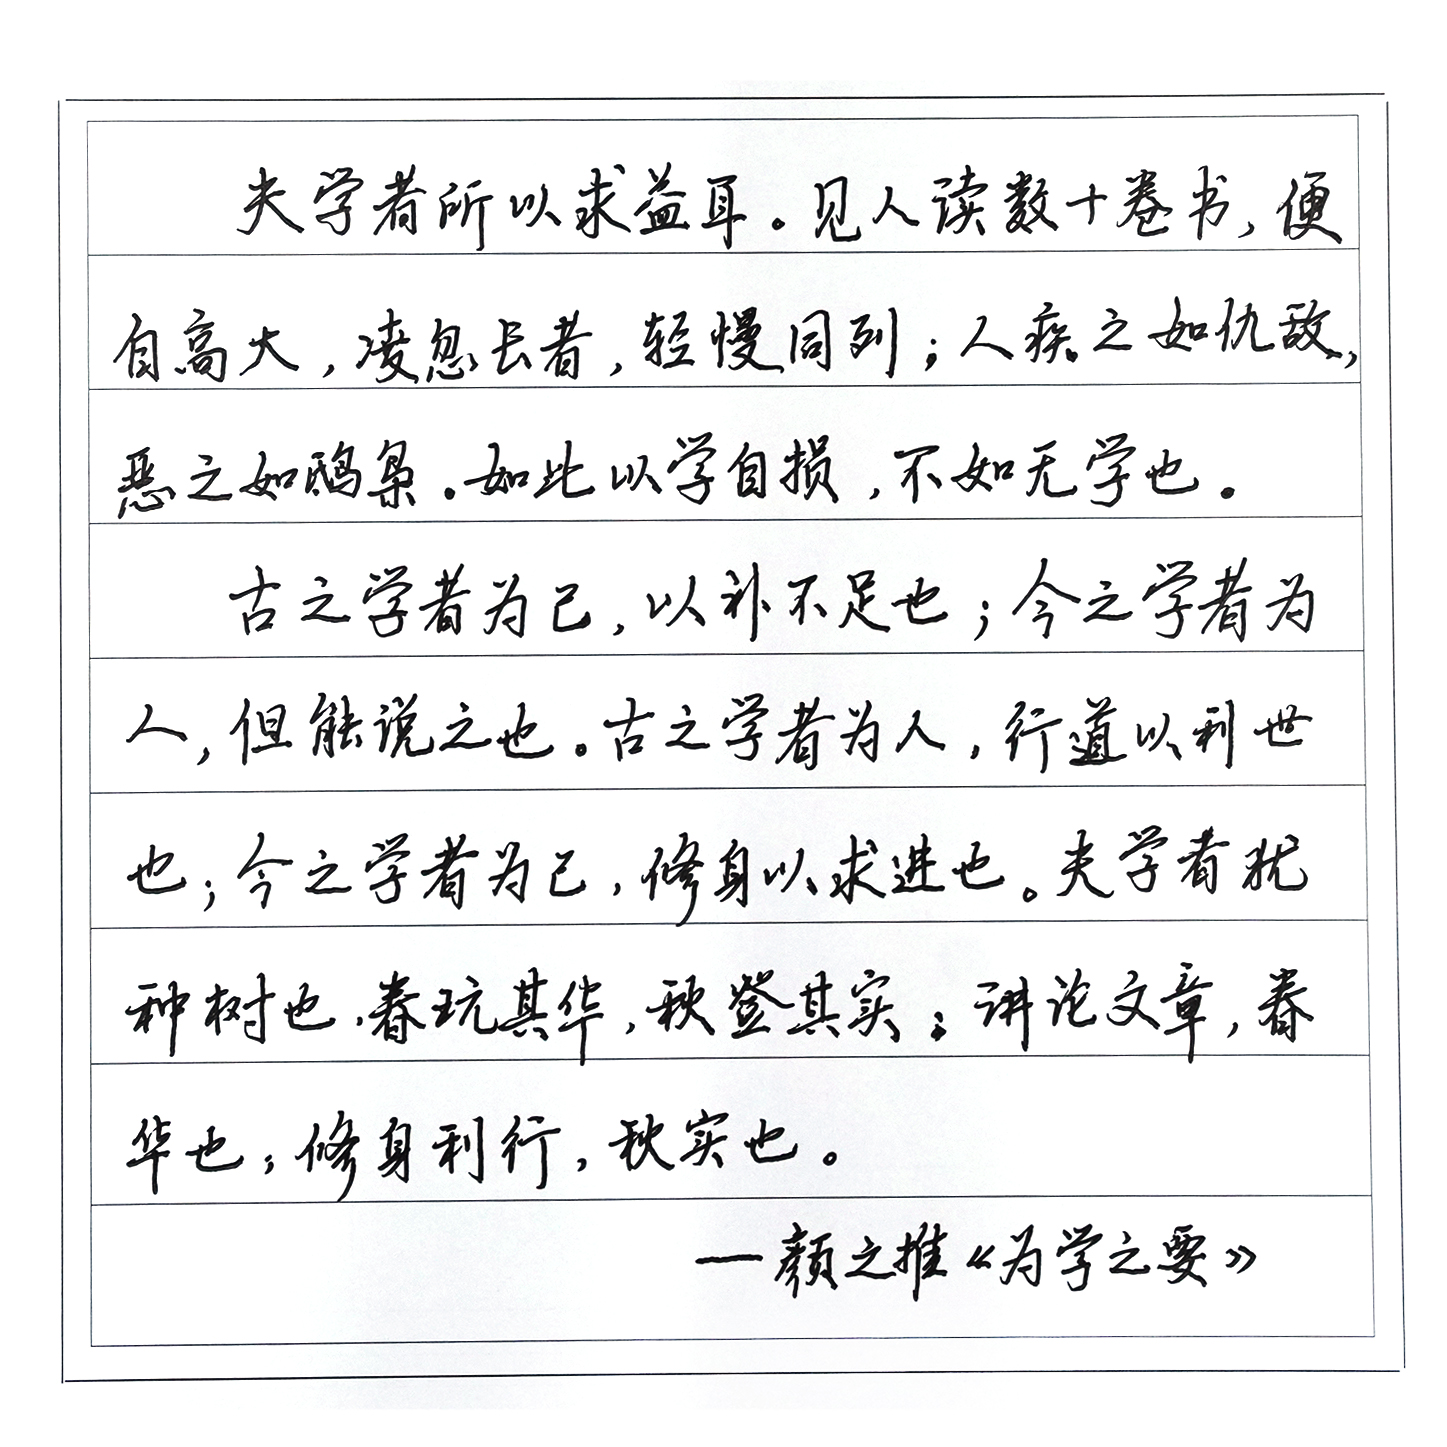 夫学者所以求益耳。见人读数十卷书,便
自高大,凌忽长者,轻慢同列;人疾之如仇敌,
恶之如鸱枭。如此以学自损,不如无学也。
古之学者为己,以补不足也;今之学者为
人,但能说之也。古之学者为人,行道以利世
也;今之学者为己,修身以求进也。夫学者犹
种树也,春玩其华,秋登其实;讲论文章,春
华也;修身利行,秋实也。
—颜之推《为学之要》